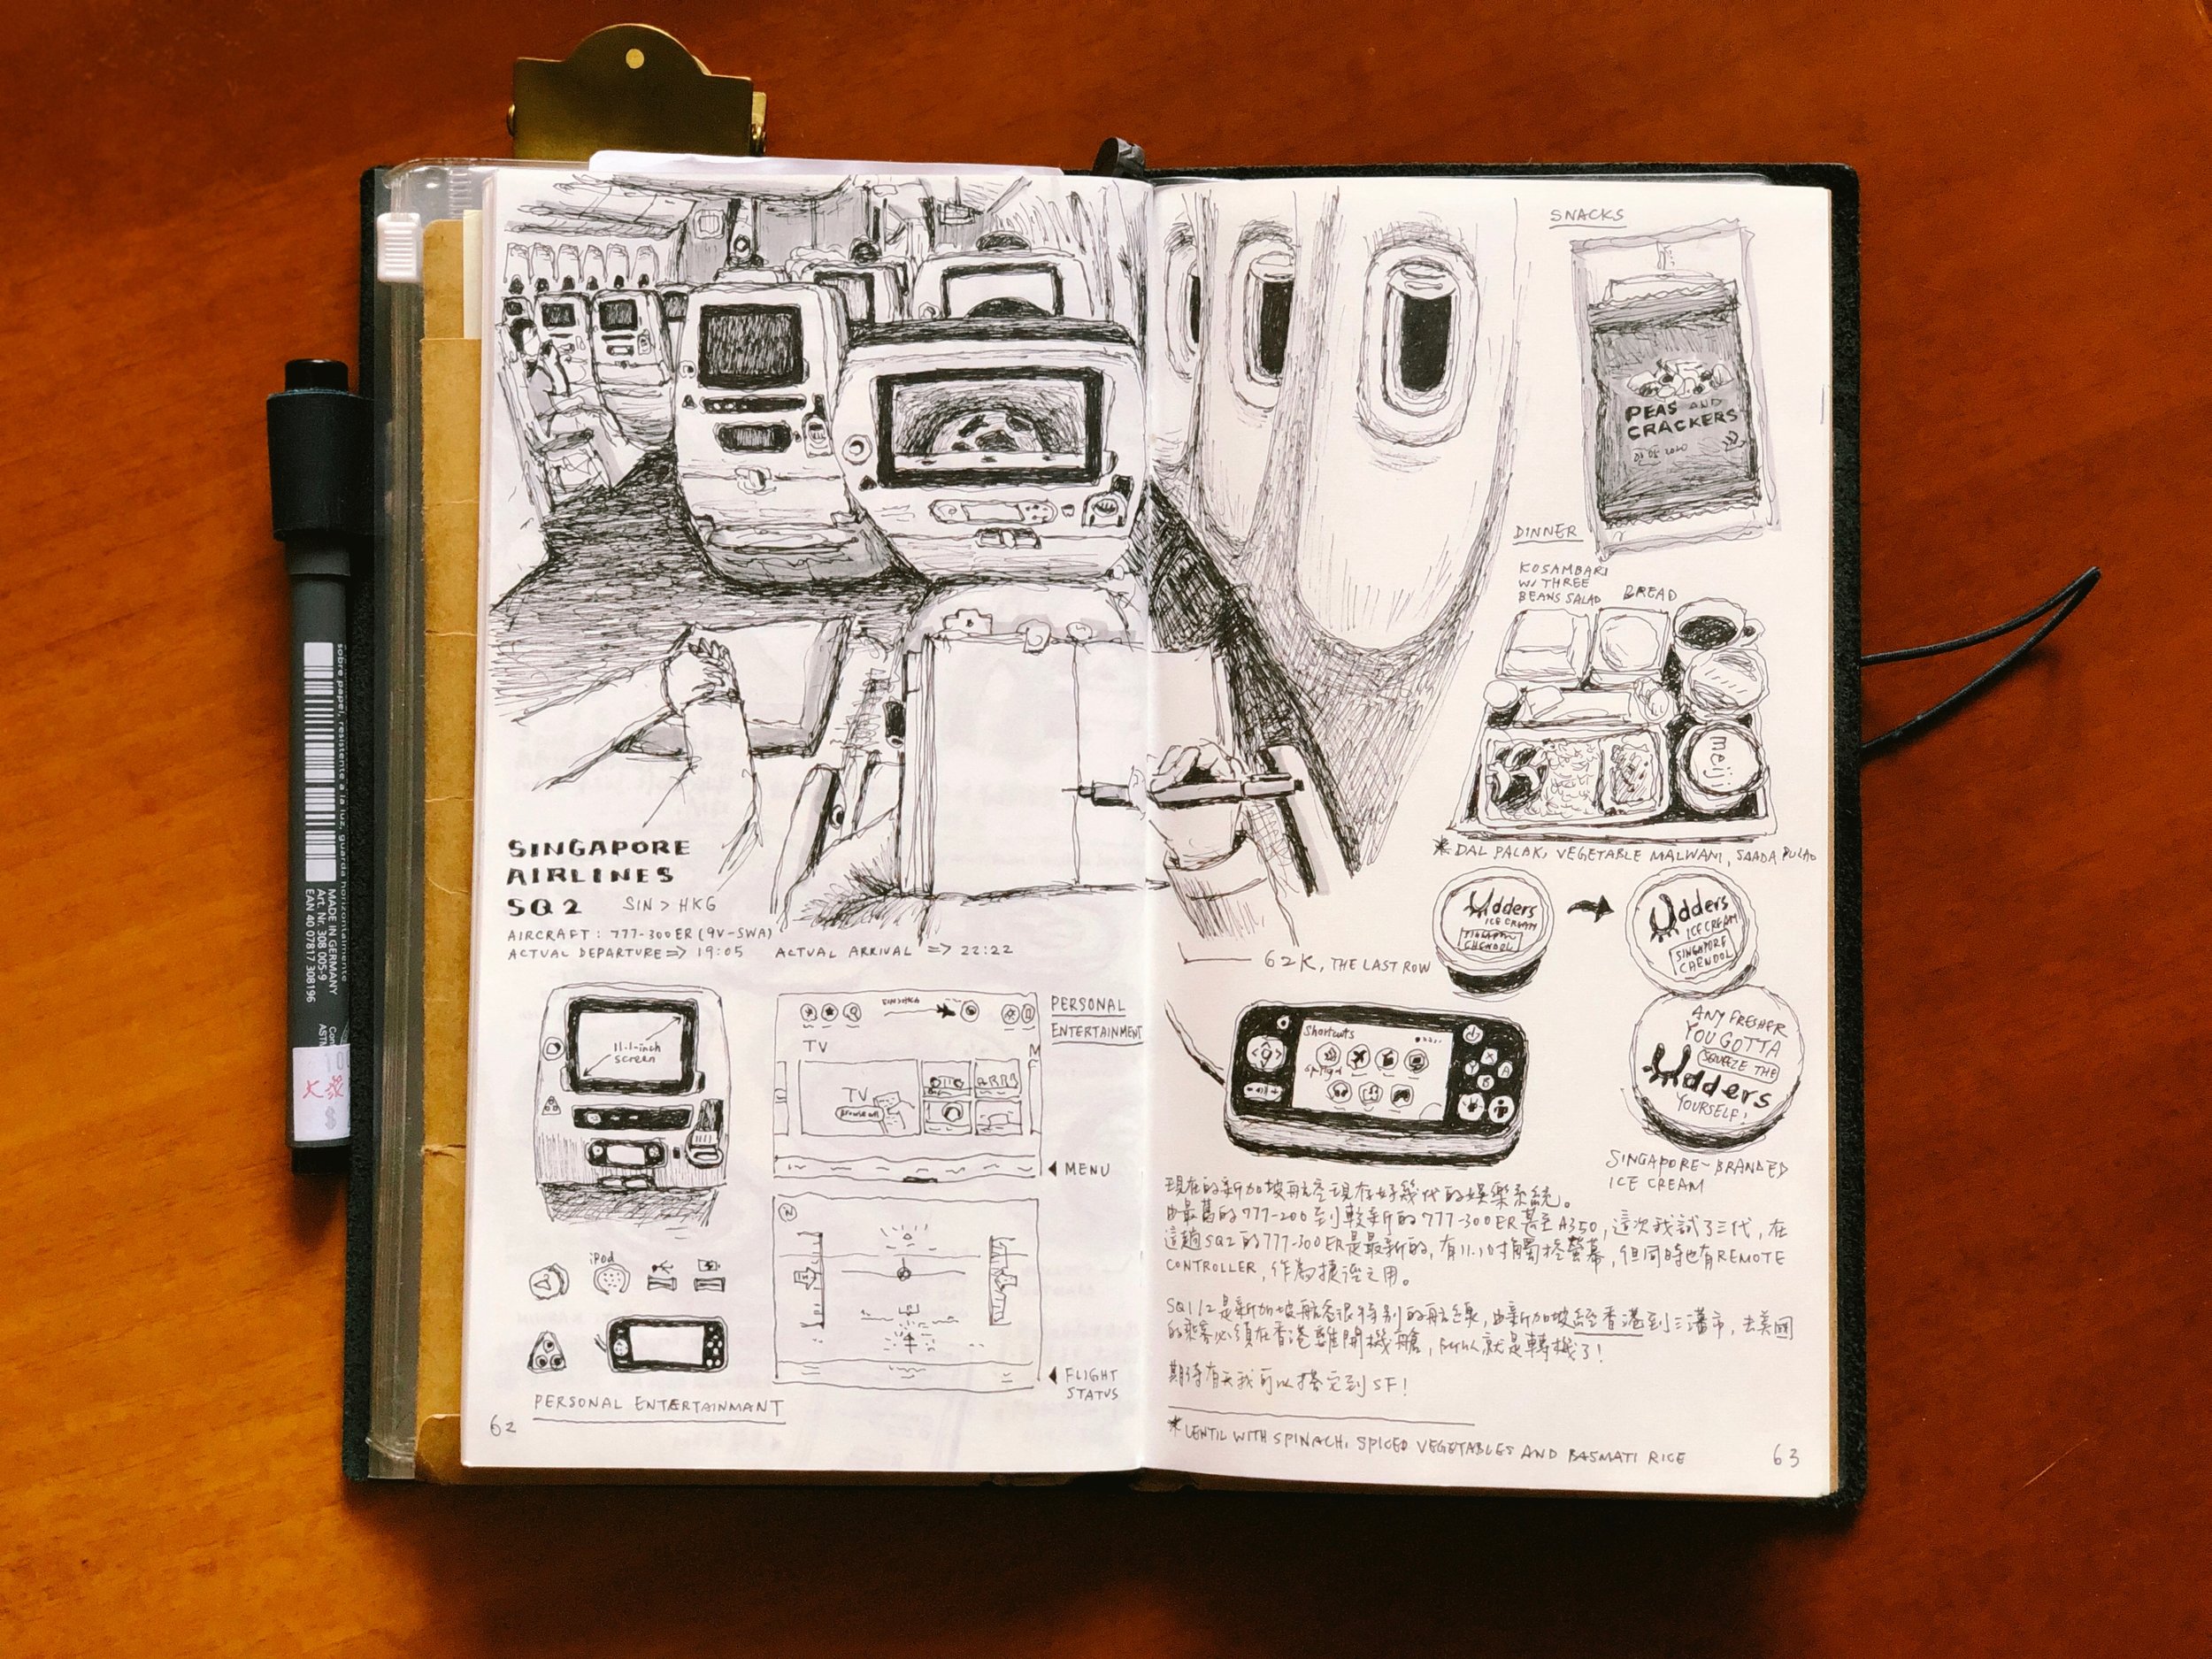 SINGAPORE
AIRLINES
SQ2 SIN > HKG
AIRCRAFT: 777-300ER (9V-SWA)
ACTUAL DEPARTURE => 19:05 ACTUAL ARRIVAL => 22:22
11.1-inch
screen
iPod
PERSONAL ENTERTAINMANT
62
SIN>HKG
TV
TV
Browse all
PERSONAL
ENTERTAINMENT
MENU
FLIGHT
STATUS
SNACKS
PEAS AND
CRACKERS
DINNER
KOSAMBARI
W/ THREE
BEANS SALAD
BREAD
meiji
* DAL PALAK, VEGETABLE MALWANI, SAADA PULAO
62K, THE LAST ROW
Udders
ICE CREAM
SINGAPORE
CHENDOL
Udders
ICE CREAM
SINGAPORE
CHENDOL
ANY FRESHER
YOU GOTTA
SQUEEZE THE
Udders
YOURSELF!
SINGAPORE-BRANDED
ICE CREAM
Shortcuts
X
Y
A
B
現在的新加坡航空現存好幾代的娛樂系統。
由最舊的777-200到較新的777-300ER甚至A350,這次我試了三代,在
這趟SQ2的777-300ER是最新的,有11.1吋觸控螢幕,但同時也有REMOTE
CONTROLLER,作為捷徑之用。
SQ1/2是新加坡航空很特别的航線,由新加坡經香港到三藩市,去美國
的乘客必須在香港離開機艙,所以就是轉機了!
期待有天我可以搭它到SF!
* LENTIL WITH SPINACH, SPICED VEGETABLES AND BASMATI RICE
63
sobre papel, resistente a la luz, guarda horizontalmente
MADE IN GERMANY
Art. Nr. 308 005-9
EAN 40 07817 308196